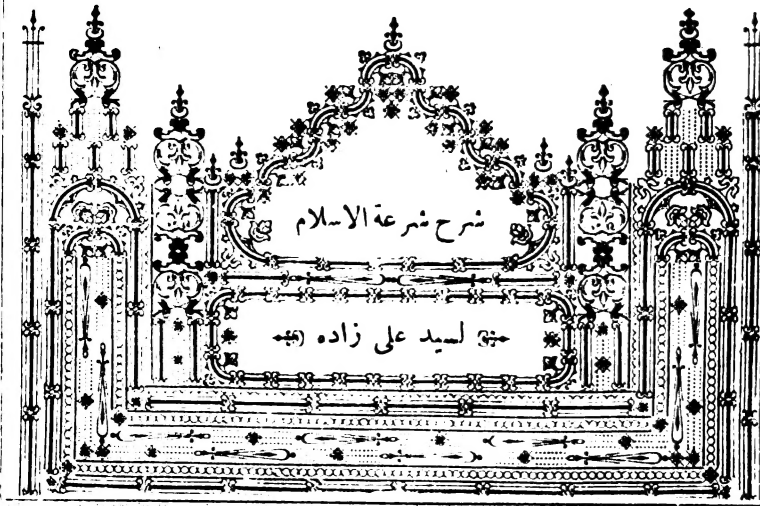 شرح شرعة الاسلام
لسيد على زاده